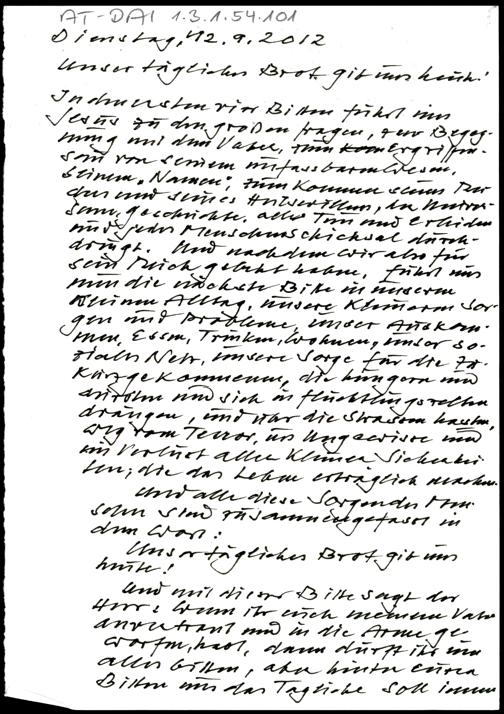 AT-DAI 1.3.1.54.101
Dienstag, 12.9.2012
Unser tägliches Brot gib uns heute!
In den ersten vier Bitten führt uns
Jesus zu den großen Fragen, zur Begeg-
nung mit dem Vater, zum Ergriffen-
sein von seinem unfassbaren Wesen,
seinem „Namen“, zum Kommen seines Rei-
ches und seines Heilswillens, der Univer-
sum, Geschichte, alles Tun und Erleiden
und jedes Menschenschicksal durch-
dringt. Und nachdem wir also für
sein Reich gebetet haben, führt uns
nun die nächste Bitte in unseren
kleinen Alltag, unsere kleineren Sor-
gen und Probleme, unser Auskom-
men, Essen, Trinken, Wohnen, unser so-
ziales Netz, unsere Sorge für die zu
kurz gekommenen, die hungern und
und sich in Flüchtlingszelten
drängen, und nur die Strassen haben,
weg vom Terror, ins Ungewisse und
im Verlust aller kleinen Sicherhei-
ten, die das Leben erträglich machen.
Und alle diese Sorgen des Men-
schen sind zusammengefasst in
dem Wort:
Unser tägliches Brot gib uns
heute!
Und mit dieser Bitte sagt der
Herr: Wenn ihr euch meinem Vater
anvertraut und in die Arme ge-
worfen habt, dann dürft ihr um
alles bitten, aber hinter euren
Bitten um das Tägliche soll immer